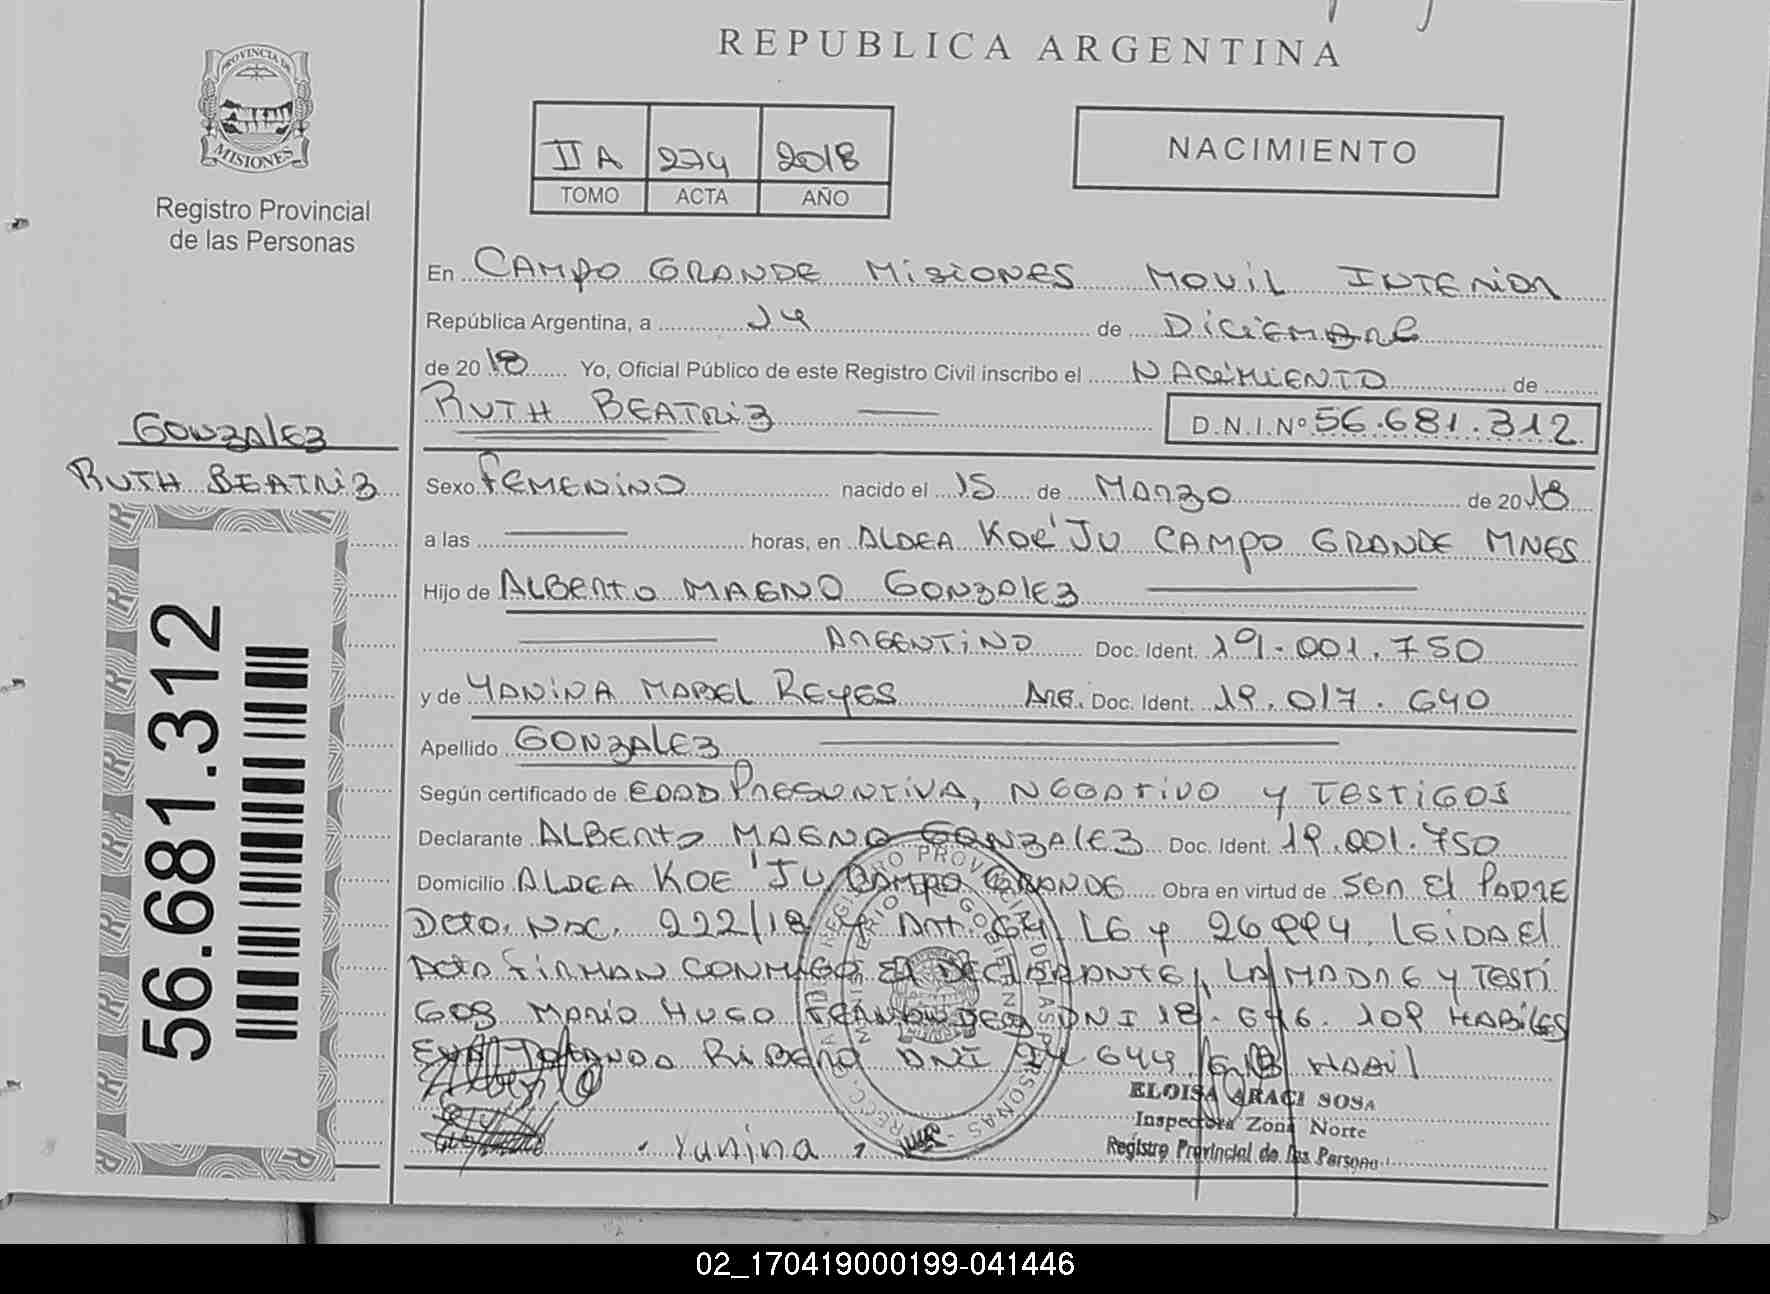 REPUBLICA ARGENTINA
PROVINCIA DE
MISIONES
Registro Provincial
de las Personas
II A 274 2018
TOMO ACTA AÑO
NACIMIENTO
En CAMPO GRANDE MISIONES MOVIL INTERIOR
República Argentina, a 24 de DICIEMBRE
de 2018 Yo, Oficial Público de este Registro Civil inscribo el NACIMIENTO de
RUTH BEATRIZ D.N.I.Nº 56.681.312
GONZALEZ
RUTH BEATRIZ
56.681.312
Sexo FEMENINO nacido el 15 de MARZO de 2018
a las horas, en ALDEA KOE'JU CAMPO GRANDE MNES
Hijo de ALBERTO MAGNO GONZALEZ
ARGENTINO Doc. Ident. 19.001.750
y de YANINA MABEL REYES ARG. Doc. Ident. 19.017.640
Apellido GONZALEZ
Según certificado de EDAD PRESUNTIVA, NEGATIVO Y TESTIGOS
Declarante ALBERTO MAGNO GONZALEZ Doc. Ident. 19.001.750
Domicilio ALDEA KOE'JU CAMPO GRANDE Obra en virtud de SER EL PADRE
DCTO. NAC. 222/18 Y ART. LG Y 26994 LEIDA EL
ACTA FIRMAN CONMIGO EL DECLARANTE, LA MADRE Y TESTI
GOS MARIO HUGO FERNANDEZ DNI 18.646.109 HABILES
RIBERO DNI 644 HABIL
Alberto
Yanina
ELOISA ARACI SOSA
Inspectora Zona Norte
Registro Provincial de las Personas
02_170419000199-041446